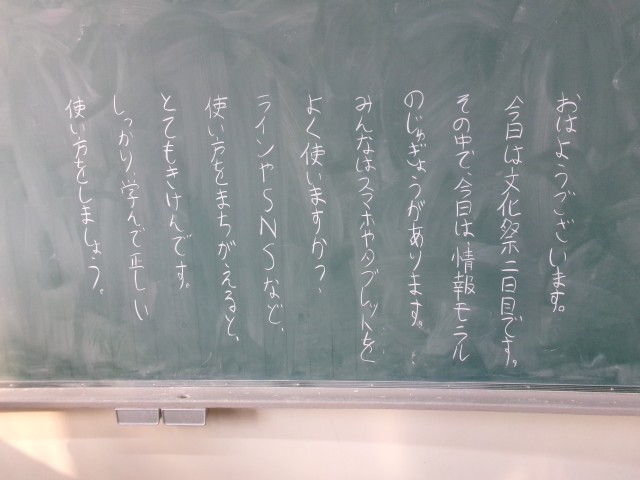 おはようございます。
今日は文化祭二日目です。
その中で、今日は、情報モラル
のじゅぎょうがあります。
みんなはスマホやタブレットを
よく使いますか？
ラインやSNSなど、
使い方をまちがえると、
とてもきけんです。
しっかり、学んで正しい
使い方をしましょう。